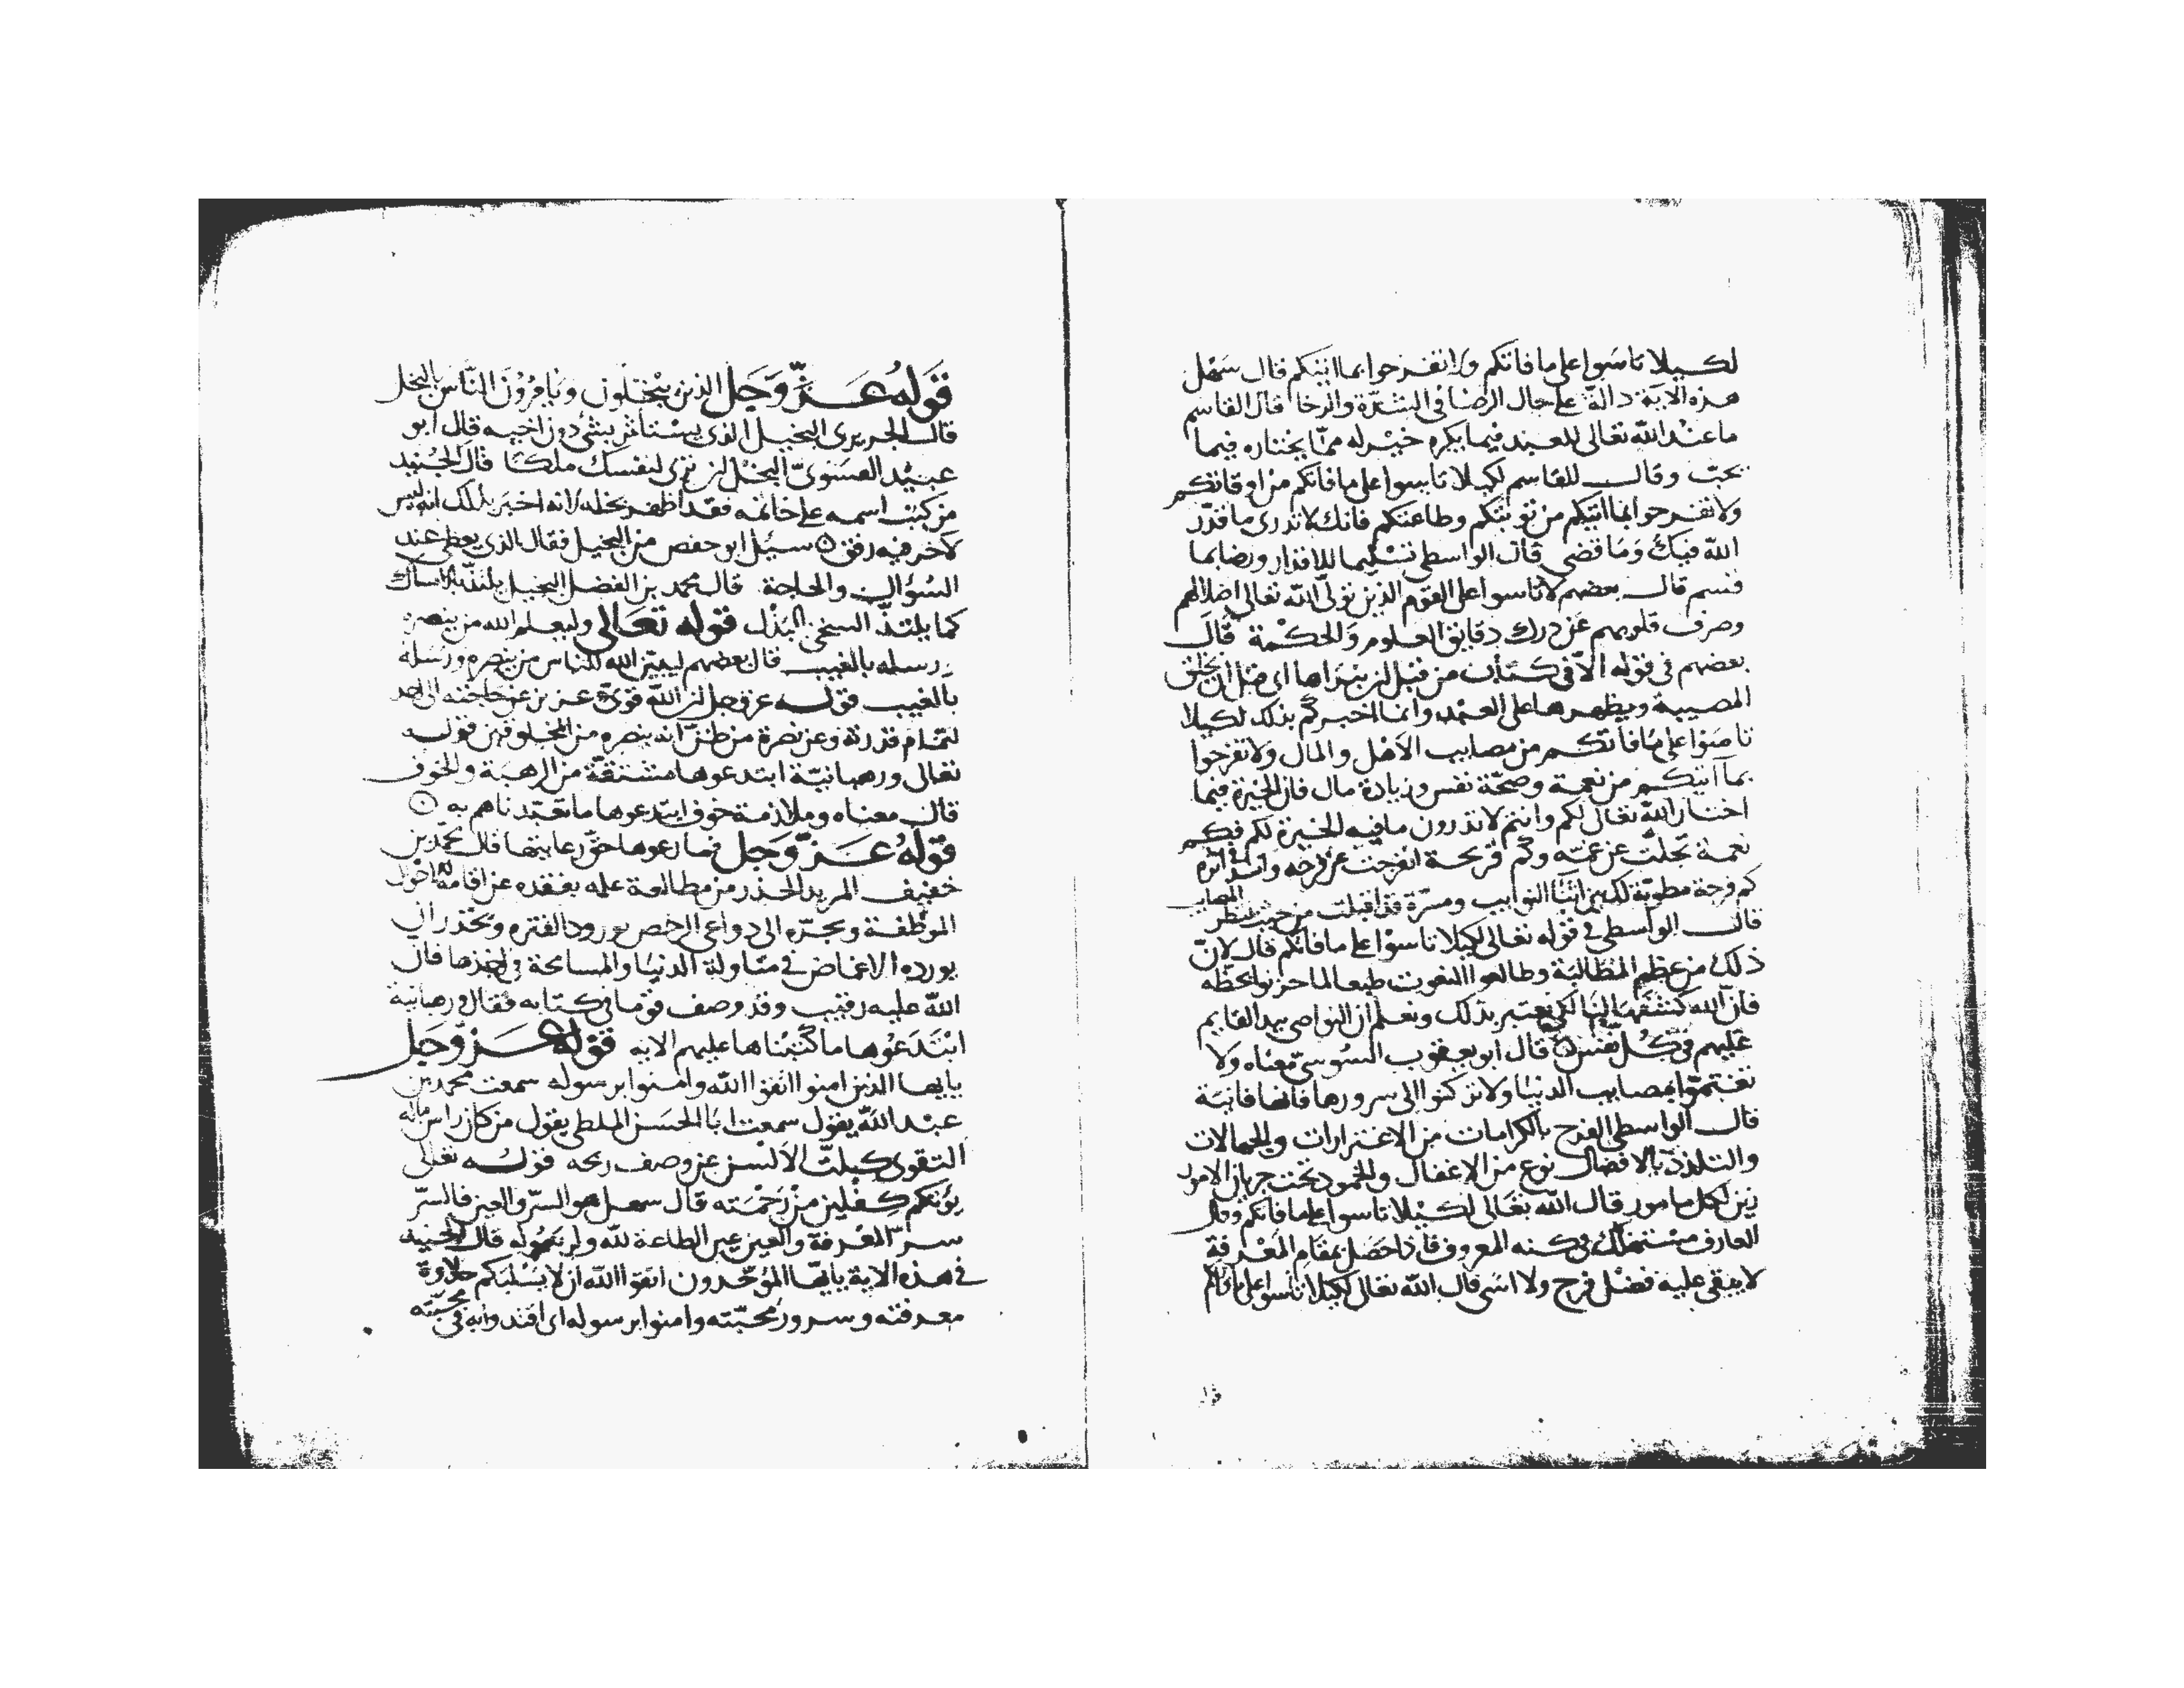 لكيلا تاسوا على ما فاتكم ولا تفرحوا بما اتيكم قال سهل
هذه الاية دالة على حال الرضا في الشدّة والرخا قال القاسم
ما عند الله تعالى للعبد فيما يكره خير له ممّا يختاره فيما
يحبّ وقال القاسم لكيلا تاسوا على ما فاتكم من اوقاتكم
ولا تفرحوا بما اتيكم من توبتكم وطاعتكم فانك لا تدرى ما قدّر
الله فيك وما قضى قال الواسطى تسليما للاقدار ورضا بما
قسم قال بعضهم لا تاسوا على القوم الذين تولّى الله تعالى اضلالهم
وصرف قلوبهم عن درك دقايق العلوم والحكمة قال
بعضهم فى قوله الا فى كتاب من قبل ان نبراها اى قبل ان نخلق
المصيبة ويظهرها على العبد وانما اخبركم بذلك لكيلا
تاسوا على ما فاتكم من مصايب الاهل والمال ولا تفرحوا
بما آتيكم من نعمة وصحّة نفس وزيادة مال فان الخيرة فيما
اختار الله تعالى لكم وانتم لا تدرون ما فيه الخيرة لكم فكم
نعمة تجلت عن غمّه وكم قرحة انفرجت عن فرحه وانشد فى اثره
كم فرحة مطويّة لك بين اثنا النوايب ومسرّة قد اقبلت من حيث تنتظر المصايب
قال الواسطى فى قوله تعالى لكيلا تاسوا على ما فاتكم قال لانّ
ذلك من عظم المطالبة وطالعوا النعوت طبعا لما حزنوا بحظّه
فان الله كشفها لنا لكى نعتبر بذلك ونعلم ان النواصى بيد القايم
عليهم فى كل نفس قال ابو يعقوب السوسىّ معناه ولا
تغتمّوا بمصايب الدنيا ولا تركنوا الى سرورها فانها فانية
قال الواسطى الفرح بالكرامات من الاغترارات والجهالات
والتلذذ بالافضال نوع من الاغفال والخمود تحت جريان الامور
زين لكل مامور قال الله تعالى لكيلا تاسوا على ما فاتكم وقال
العارف مستهلك فى كنه المعروف فاذا حصل بمقام المعرفة
لا يبقى عليه فضل فرح ولا اسى قال الله تعالى لكيلا تاسوا على ما فاتكم
قوله عزّ وجل الذين يبخلون ويامرون الناس بالبخل
قال الجريرى البخيل الذى يستاثر بشئ دون اخيه قال ابو
عبيد البسرىّ البخل ان ترى لنفسك ملكا قال الجنيد
من كتب اسمه على خاتمه فقد اظهر بخله لانه اخبر بذلك انه ليس
لاخر فيه رفق سئل ابو حفص من البخيل فقال الذى يعطى عند
السؤال والحاجة قال محمد بن الفضل البخيل يلتذّ بالامساك
كما يلتذّ السخى بالبذل قوله تعالى وليعلم الله من ينصره
ورسله بالغيب قال بعضهم ليميّز الله للناس من ينصره ورسله
بالغيب قوله عز وجل ان الله قوى عزيز عن حاجته الى احد
لتمام قدرته وعن نصرة من ظنّ انه ينصره من المخلوقين قوله
تعالى ورهبانيّة ابتدعوها مشتقّة من الرهبة والخوف
قال معناه وملازمة خوف ابتدعوها ما تعبّدناهم به
قوله عزّ وجل فما رعوها حقّ رعايتها قال محمّد بن
خفيف المريد الحذر من مطالعة علمه بفقده عن اقامة احوال
الموظفة ويجرّه الى دواعى الرخص بورود الفترة ويحذر ان
يورده الاغماض فى متاولة الدنيا والمسامحة فى اخذها فان
الله عليه رقيب وقد وصف قوما فى كتابه فقال ورهبانية
ابتدعوها ما كتبناها عليهم الاية قوله عزّ وجل
يايها الذين امنوا اتقوا الله وامنوا برسوله سمعت محمد بن
عبد الله يقول سمعت ابا الحسن الملطى يقول من كان راس ماله
التقوى كلّت الالسن عن وصف ربحه قوله تعالى
يوتكم كفلين من رحمته قال سهل هو السرّ والعين فالسرّ
سرّ المعرفة والعين عين الطاعة لله ولرسوله قال الجنيد
فى هذه الاية يايها الموحّدون اتقوا الله ان لا يسلبكم حلاوة
معرفته وسرور محبّته وامنوا برسوله اى اقتدوا به فى محبّته